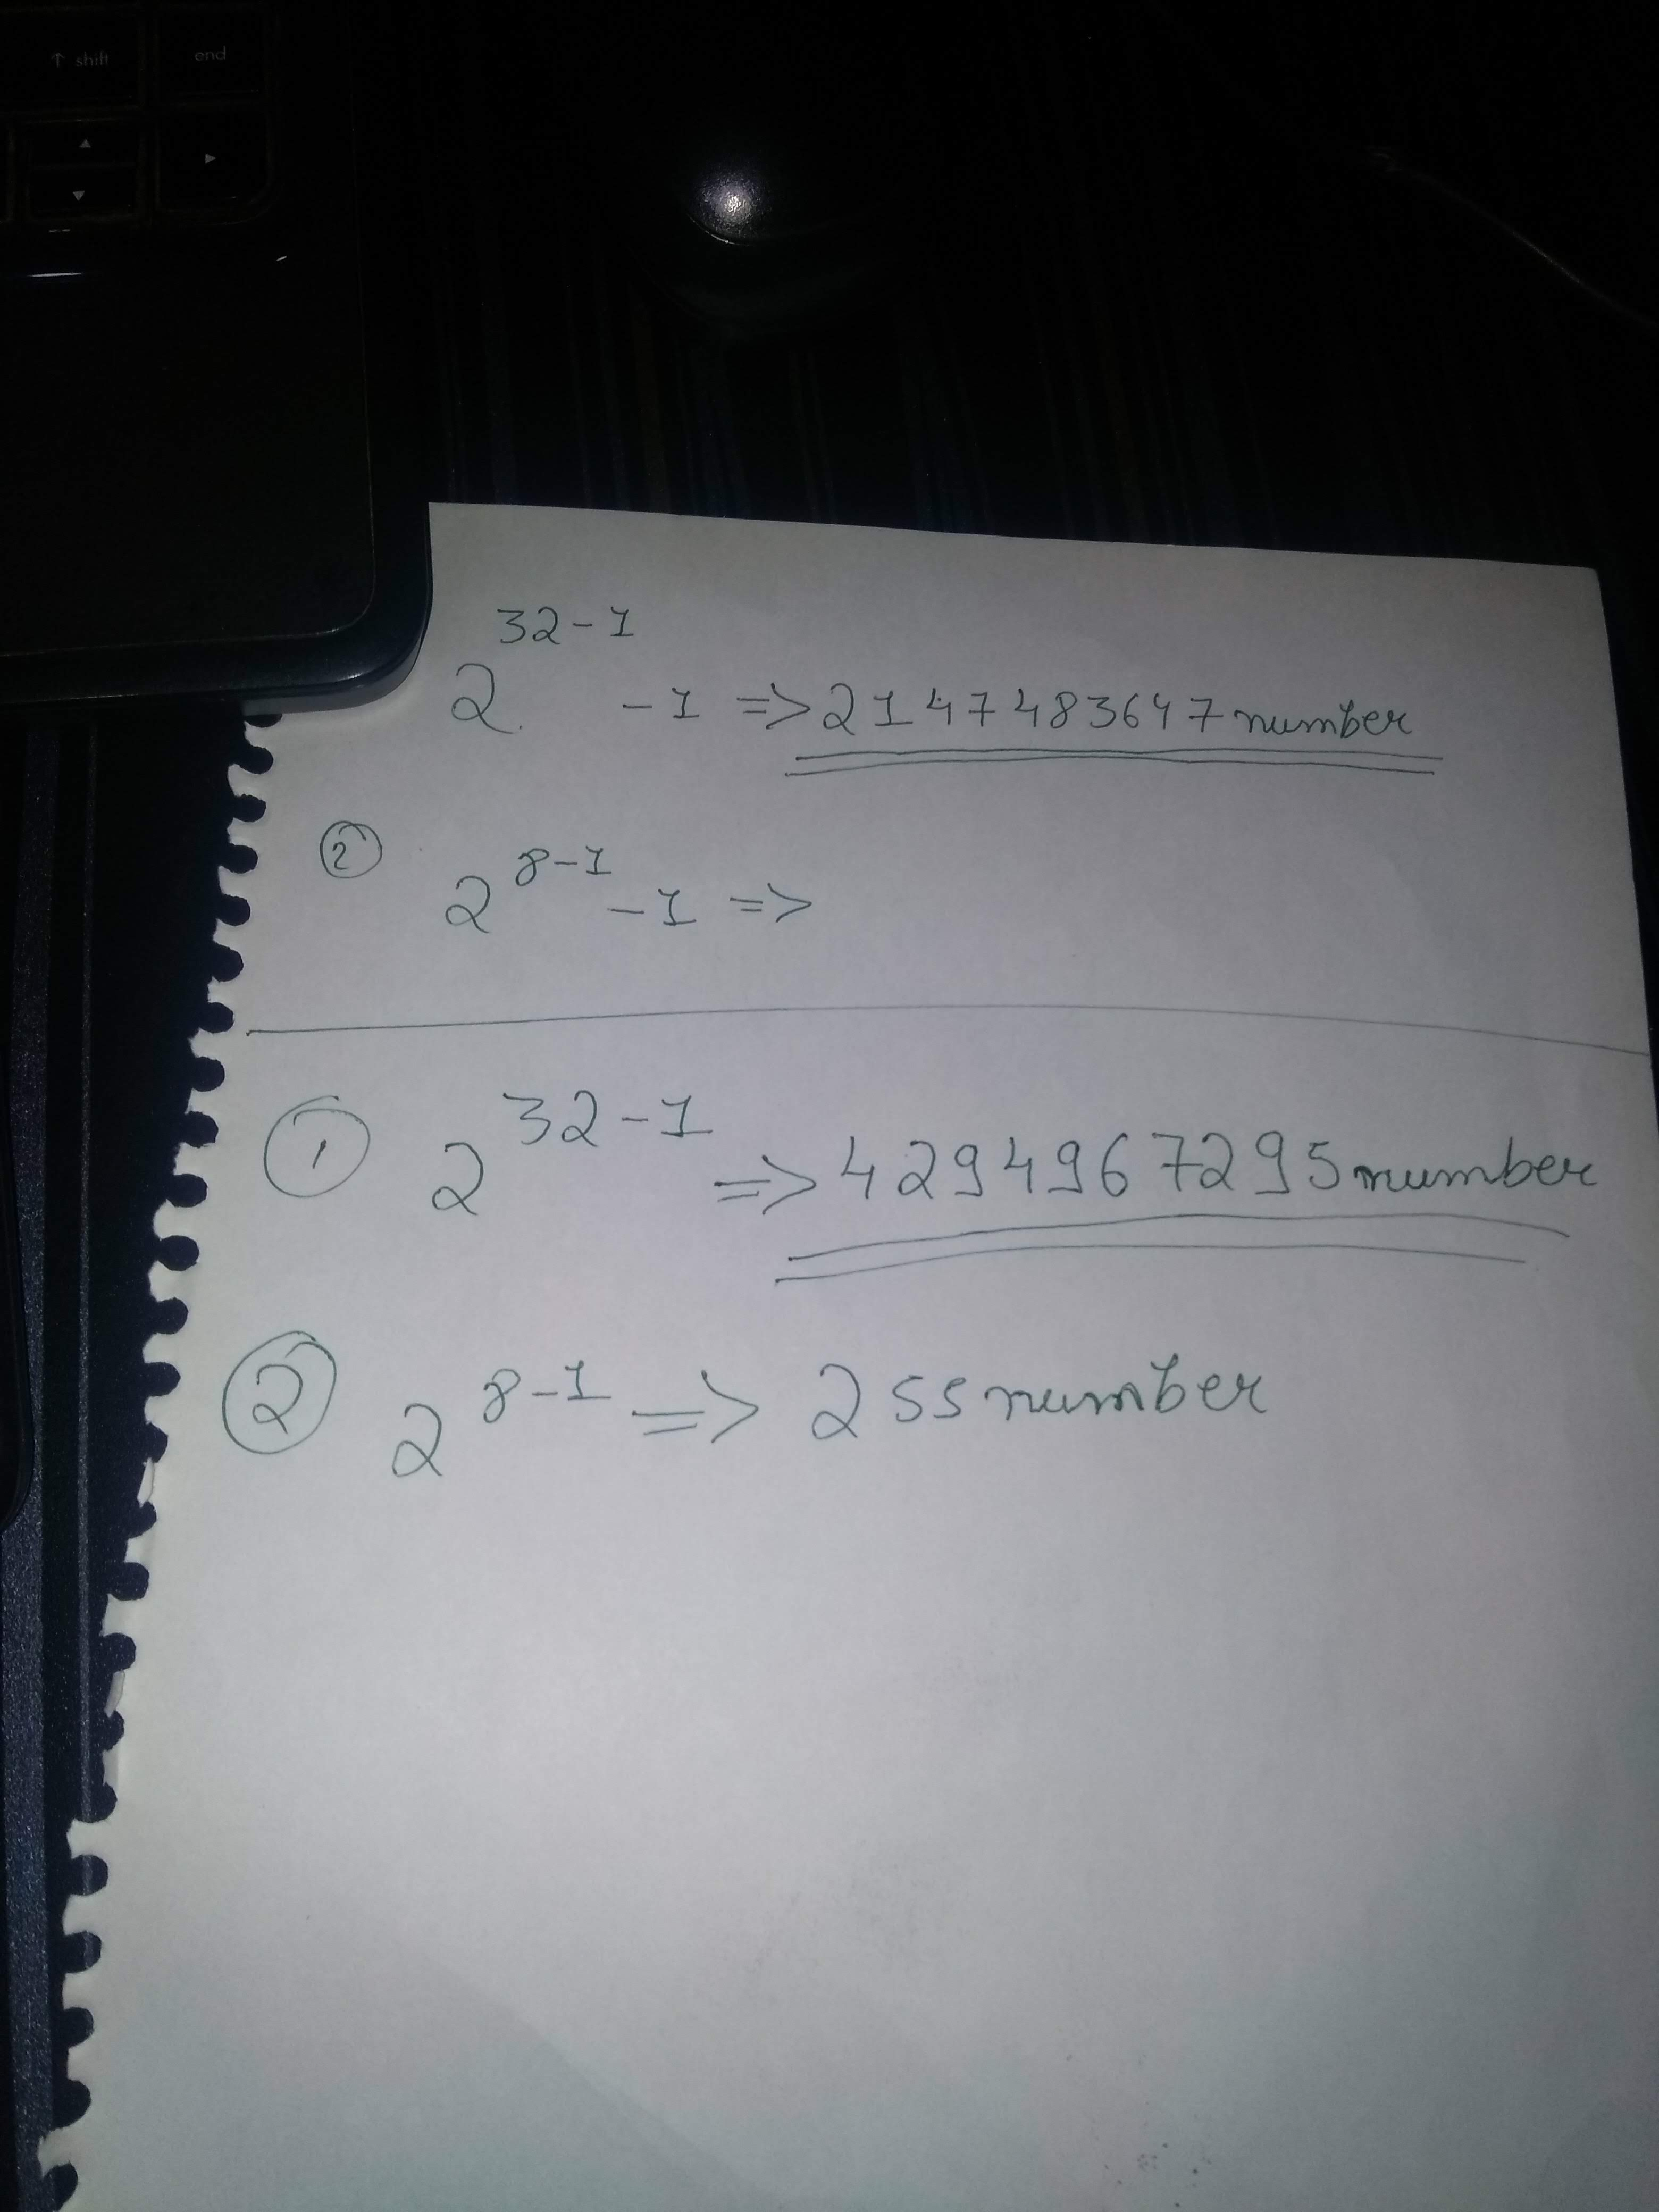 ↑ shift end
▲
▼ ►
2^(32-1) -1 => 2147483647 number
② 2^(8-1) -1 =>
① 2^(32-1) => 4294967295 number
② 2^(8-1) => 255 number